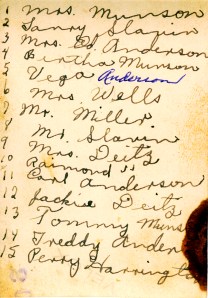 1 Mrs. Munson
2 Larry Slavin
3 Mrs. Ed. Anderson
4 Bertha Munson
5 Vega Anderson
6 Mrs Wells
7 Mr. Miller
8 Mr Slavin
9 Mrs. Deitz
10 Raimond "
11 Carl Anderson
12 Jackie Deitz
13 Tommy Muns
14 Freddy Ander
15 Perry Harringt